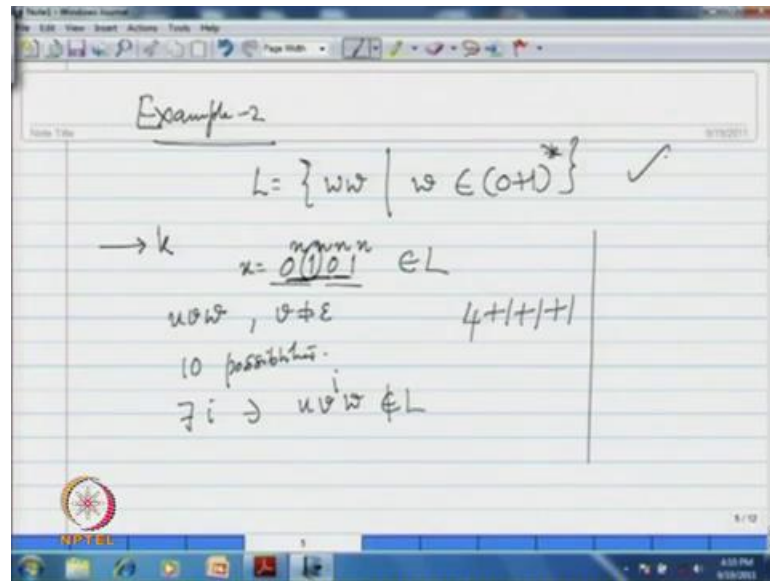 Note1 - Windows Journal
File Edit View Insert Actions Tools Help
Page Width
Example-2
Note Title
9/19/2011
L = { ww | w ∈ (0+1)* } ✓
→ k
x = 0ⁿ1ⁿ0ⁿ1ⁿ ∈ L
uvw , v ≠ ε
4+1+1+1
10 possibilities.
∃ i ∋ uvⁱw ∉ L
NPTEL
5/12
5
4:55 PM
9/19/2011